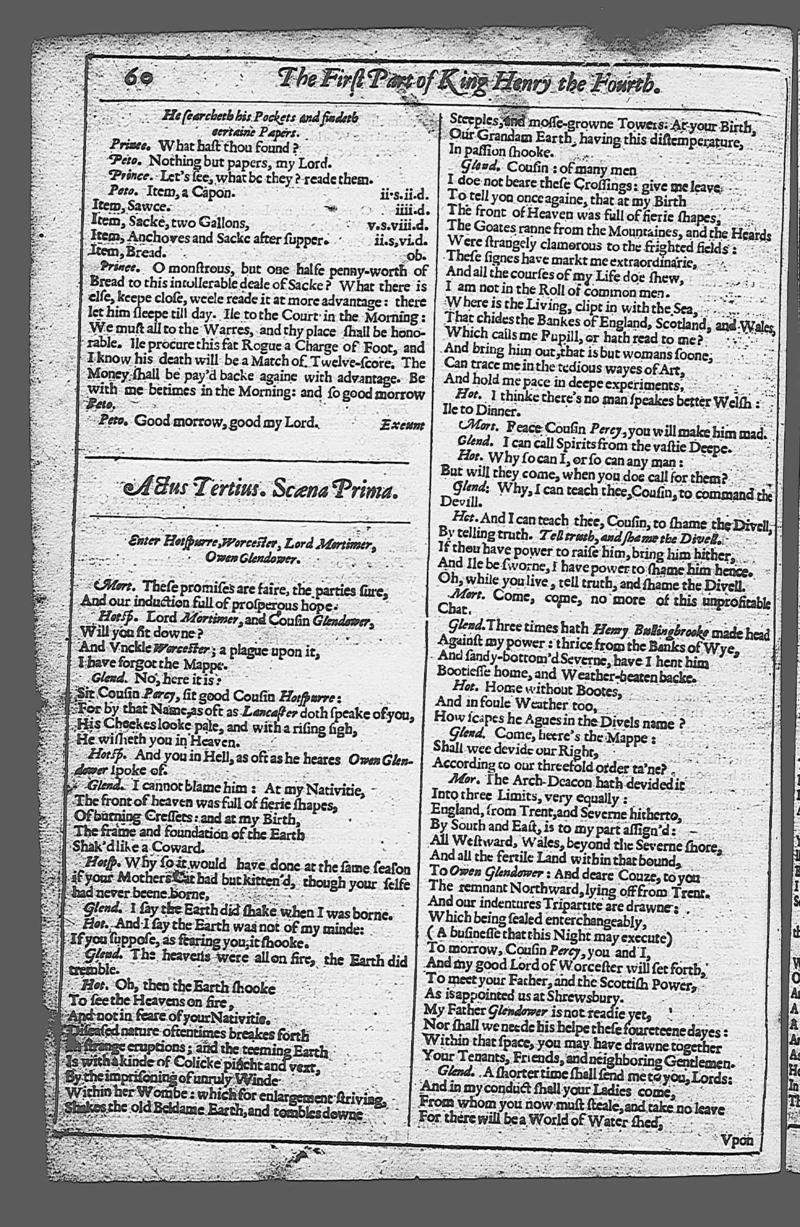 60
The First Part of King Henry the Fourth.
He searcheth his Pockets and findeth
certaine Papers.
Prince. What hast thou found?
Peto. Nothing but papers, my Lord.
Prince. Let's see, what be they? reade them.
Peto. Item, a Capon. ii.s.ii.d.
Item, Sawce. iiii.d.
Item, Sacke, two Gallons, v.s.viii.d.
Item, Anchoves and Sacke after supper. ii.s,vi.d.
Item, Bread. ob.
Prince. O monstrous, but one halfe penny-worth of
Bread to this intollerable deale of Sacke? What there is
else, keepe close, weele reade it at more advantage: there
let him sleepe till day. Ile to the Court in the Morning:
We must all to the Warres, and thy place shall be hono-
rable. Ile procure this fat Rogue a Charge of Foot, and
I know his death will be a Match of Twelve-score. The
Money shall be pay'd backe againe with advantage. Be
with me betimes in the Morning: and so good morrow
Peto.
Peto. Good morrow, good my Lord. Exeunt
Actus Tertius. Scæna Prima.
Enter Hotspurre, Worcester, Lord Mortimer,
Owen Glendower.
Mort. These promises are faire, the parties sure,
And our induction full of prosperous hope.
Hotsp. Lord Mortimer, and Cousin Glendower,
Will you sit downe?
And Vnckle Worcester; a plague upon it,
I have forgot the Mappe.
Glend. No, here it is:
Sit Cousin Percy, sit good Cousin Hotspurre:
For by that Name, as oft as Lancaster doth speake of you,
His Cheekes looke pale, and with a rising sigh,
He wisheth you in Heaven.
Hotsp. And you in Hell, as oft as he heares Owen Glen-
dower spoke of.
Glend. I cannot blame him: At my Nativitie,
The front of heaven was full of fierie shapes,
Of burning Cressets: and at my Birth,
The frame and foundation of the Earth
Shak'd like a Coward.
Hotsp. Why so it would have done at the same season
if your Mothers Cat had but kitten'd, though your selfe
had never beene borne,
Glend. I say the Earth did shake when I was borne.
Hot. And I say the Earth was not of my minde:
If you suppose, as fearing you, it shooke.
Glend. The heavens were all on fire, the Earth did
tremble.
Hot. Oh, then the Earth shooke
To see the Heavens on fire,
And not in feare of your Nativitie.
Diseased nature oftentimes breakes forth
In strange eruptions; and the teeming Earth
Is with a kinde of Colicke pincht and vext,
By the imprisoning of unruly Winde
Within her Wombe: which for enlargement striving,
Shakes the old Beldame Earth, and tombles downe
Steeples, and mosse-growne Towers: At your Birth,
Our Grandam Earth, having this distemperature,
In passion shooke.
Glend. Cousin: of many men
I doe not beare these Crossings: give me leave
To tell you once againe, that at my Birth
The front of Heaven was full of fierie shapes,
The Goates ranne from the Mountaines, and the Heards
Were strangely clamorous to the frighted fields:
These signes have markt me extraordinarie,
And all the courses of my Life doe shew,
I am not in the Roll of common men.
Where is the Living, clipt in with the Sea,
That chides the Bankes of England, Scotland, and Wales,
Which calls me Pupill, or hath read to me?
And bring him out, that is but womans sonne,
Can trace me in the tedious wayes of Art,
And hold me pace in deepe experiments,
Hot. I thinke there's no man speakes better Welsh:
Ile to Dinner.
Mort. Peace Cousin Percy, you will make him mad.
Glend. I can call Spirits from the vastie Deepe.
Hot. Why so can I, or so can any man:
But will they come, when you doe call for them?
Glend: Why, I can teach thee, Cousin, to command the
Devill.
Hot. And I can teach thee, Cousin, to shame the Divell,
By telling truth. Tell truth, and shame the Divell.
If thou have power to raise him, bring him hither,
And Ile be sworne, I have power to shame him hence.
Oh, while you live, tell truth, and shame the Divell.
Mort. Come, come, no more of this unprofitable
Chat.
Glend. Three times hath Henry Bullingbrooke made head
Against my power: thrice from the Banks of Wye,
And sandy-bottom'd Severne, have I hent him
Bootlesse home, and Weather-beaten backe.
Hot. Home without Bootes,
And in foule Weather too,
How scapes he Agues in the Divels name?
Glend. Come, heere's the Mappe:
Shall wee devide our Right,
According to our threefold order ta'ne?
Mor. The Arch-Deacon hath devided it
Into three Limits, very equally:
England, from Trent, and Severne hitherto,
By South and East, is to my part assign'd:
All Westward, Wales, beyond the Severne shore,
And all the fertile Land within that bound,
To Owen Glendower: And deare Couze, to you
The remnant Northward, lying off from Trent.
And our indentures Tripartite are drawne:
Which being sealed enterchangeably,
(A businesse that this Night may execute)
To morrow, Cousin Percy, you and I,
And my good Lord of Worcester will set forth,
To meet your Father, and the Scottish Power,
As is appointed us at Shrewsbury.
My Father Glendower is not readie yet,
Nor shall we neede his helpe these foureteene dayes:
Within that space, you may have drawne together
Your Tenants, Friends, and neighboring Gentlemen.
Glend. A shorter time shall send me to you, Lords:
And in my conduct shall your Ladies come,
From whom you now must steale, and take no leave
For there will be a World of Water shed,
Vpon